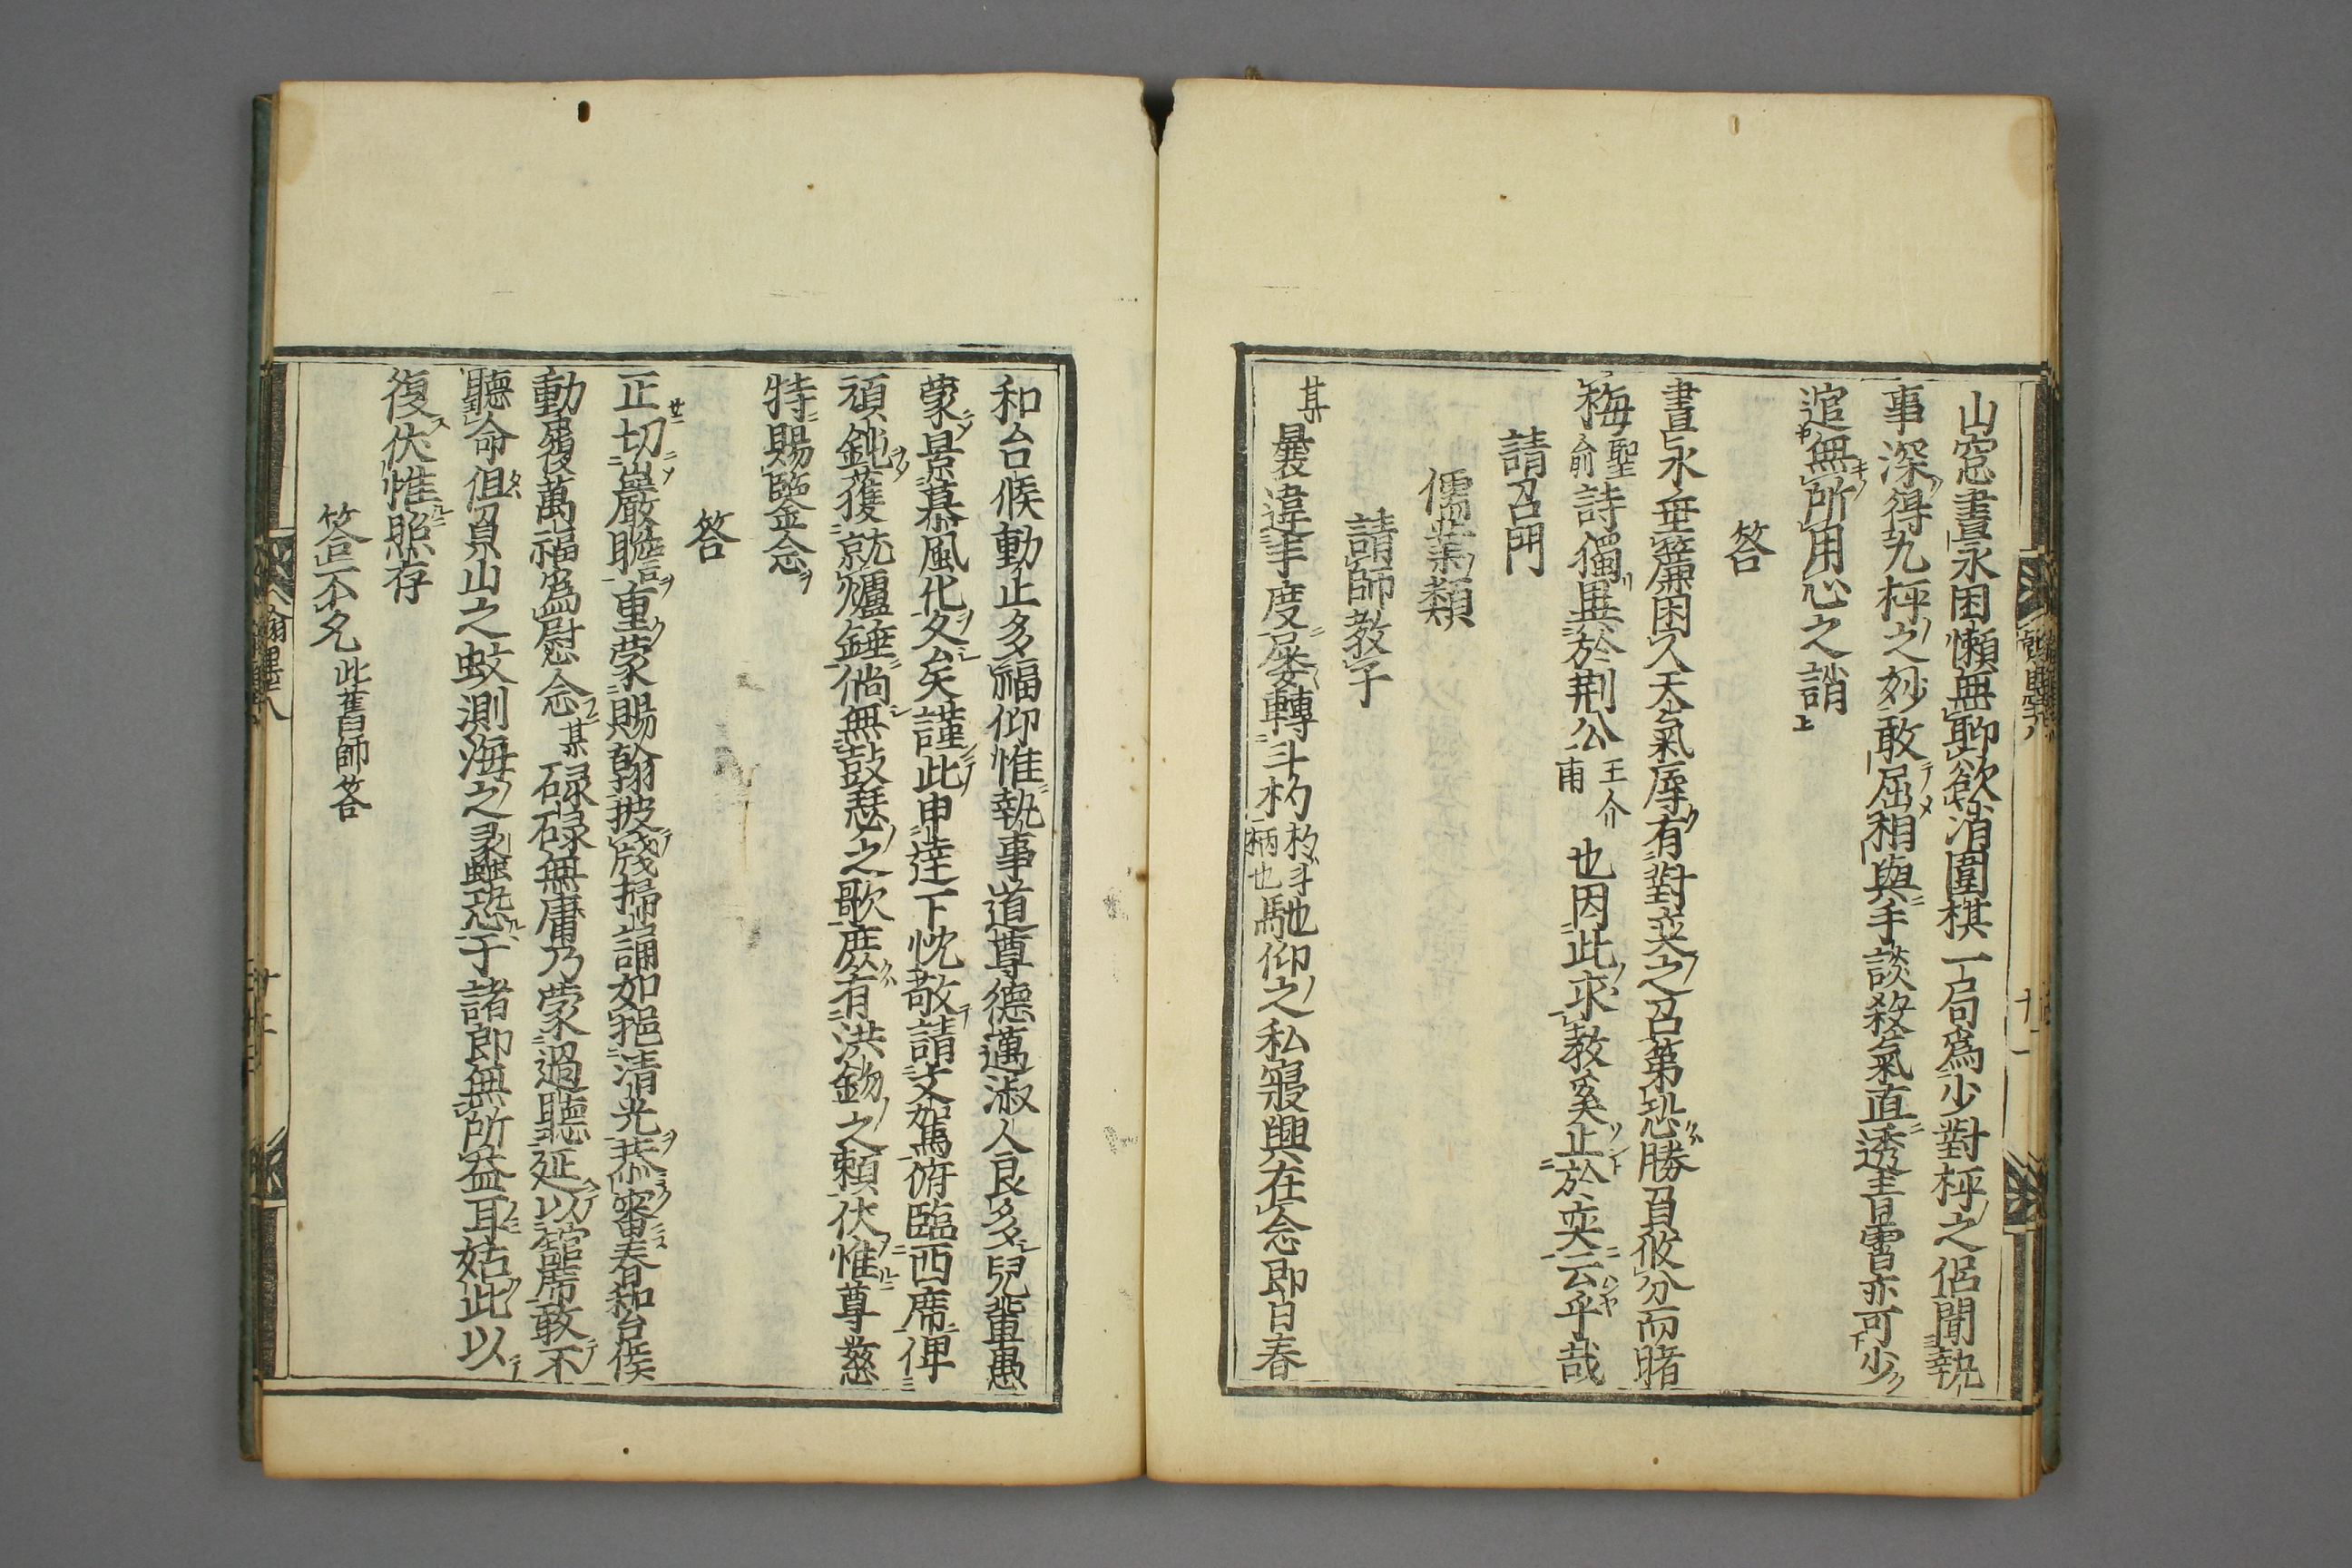 山窓晝永困懶無聊欲消圍棋一局爲少對枰之侶聞執
事深得九枰之妙敢屈相與手談殺氣直透書帷亦可少
逭無所用心之誚
答
晝永垂簾困人天氣辱有對奕之召第恐勝負攸分而賭
梅聖俞詩獨異於荆公王介甫也因此求教奚止於奕云乎哉
請召門
儒業類
請師教子
某曩違丰度屡轉斗杓杓斗柄也馳仰之私寢興在念即日春
和台候動止多福仰惟執事道尊德邁淑人良多兒輩愚
蒙景慕風化久矣謹此申達下忱敬請文駕俯臨西席俾
頑鈍獲就爐錘倘無鼓瑟之歌庶有洪鈞之頼伏惟尊慈
特賜臨金念
答
正切巖瞻重蒙賜翰披牋掃誦如挹清光恭審春和台候
動履萬福爲慰念某碌碌無庸乃蒙過聽延以舘席敢不
聽命但負山之蚊測海之蠡恐于諸郎無所益耳姑此以
復伏惟照存
答一不允此舊師答
翰墨八